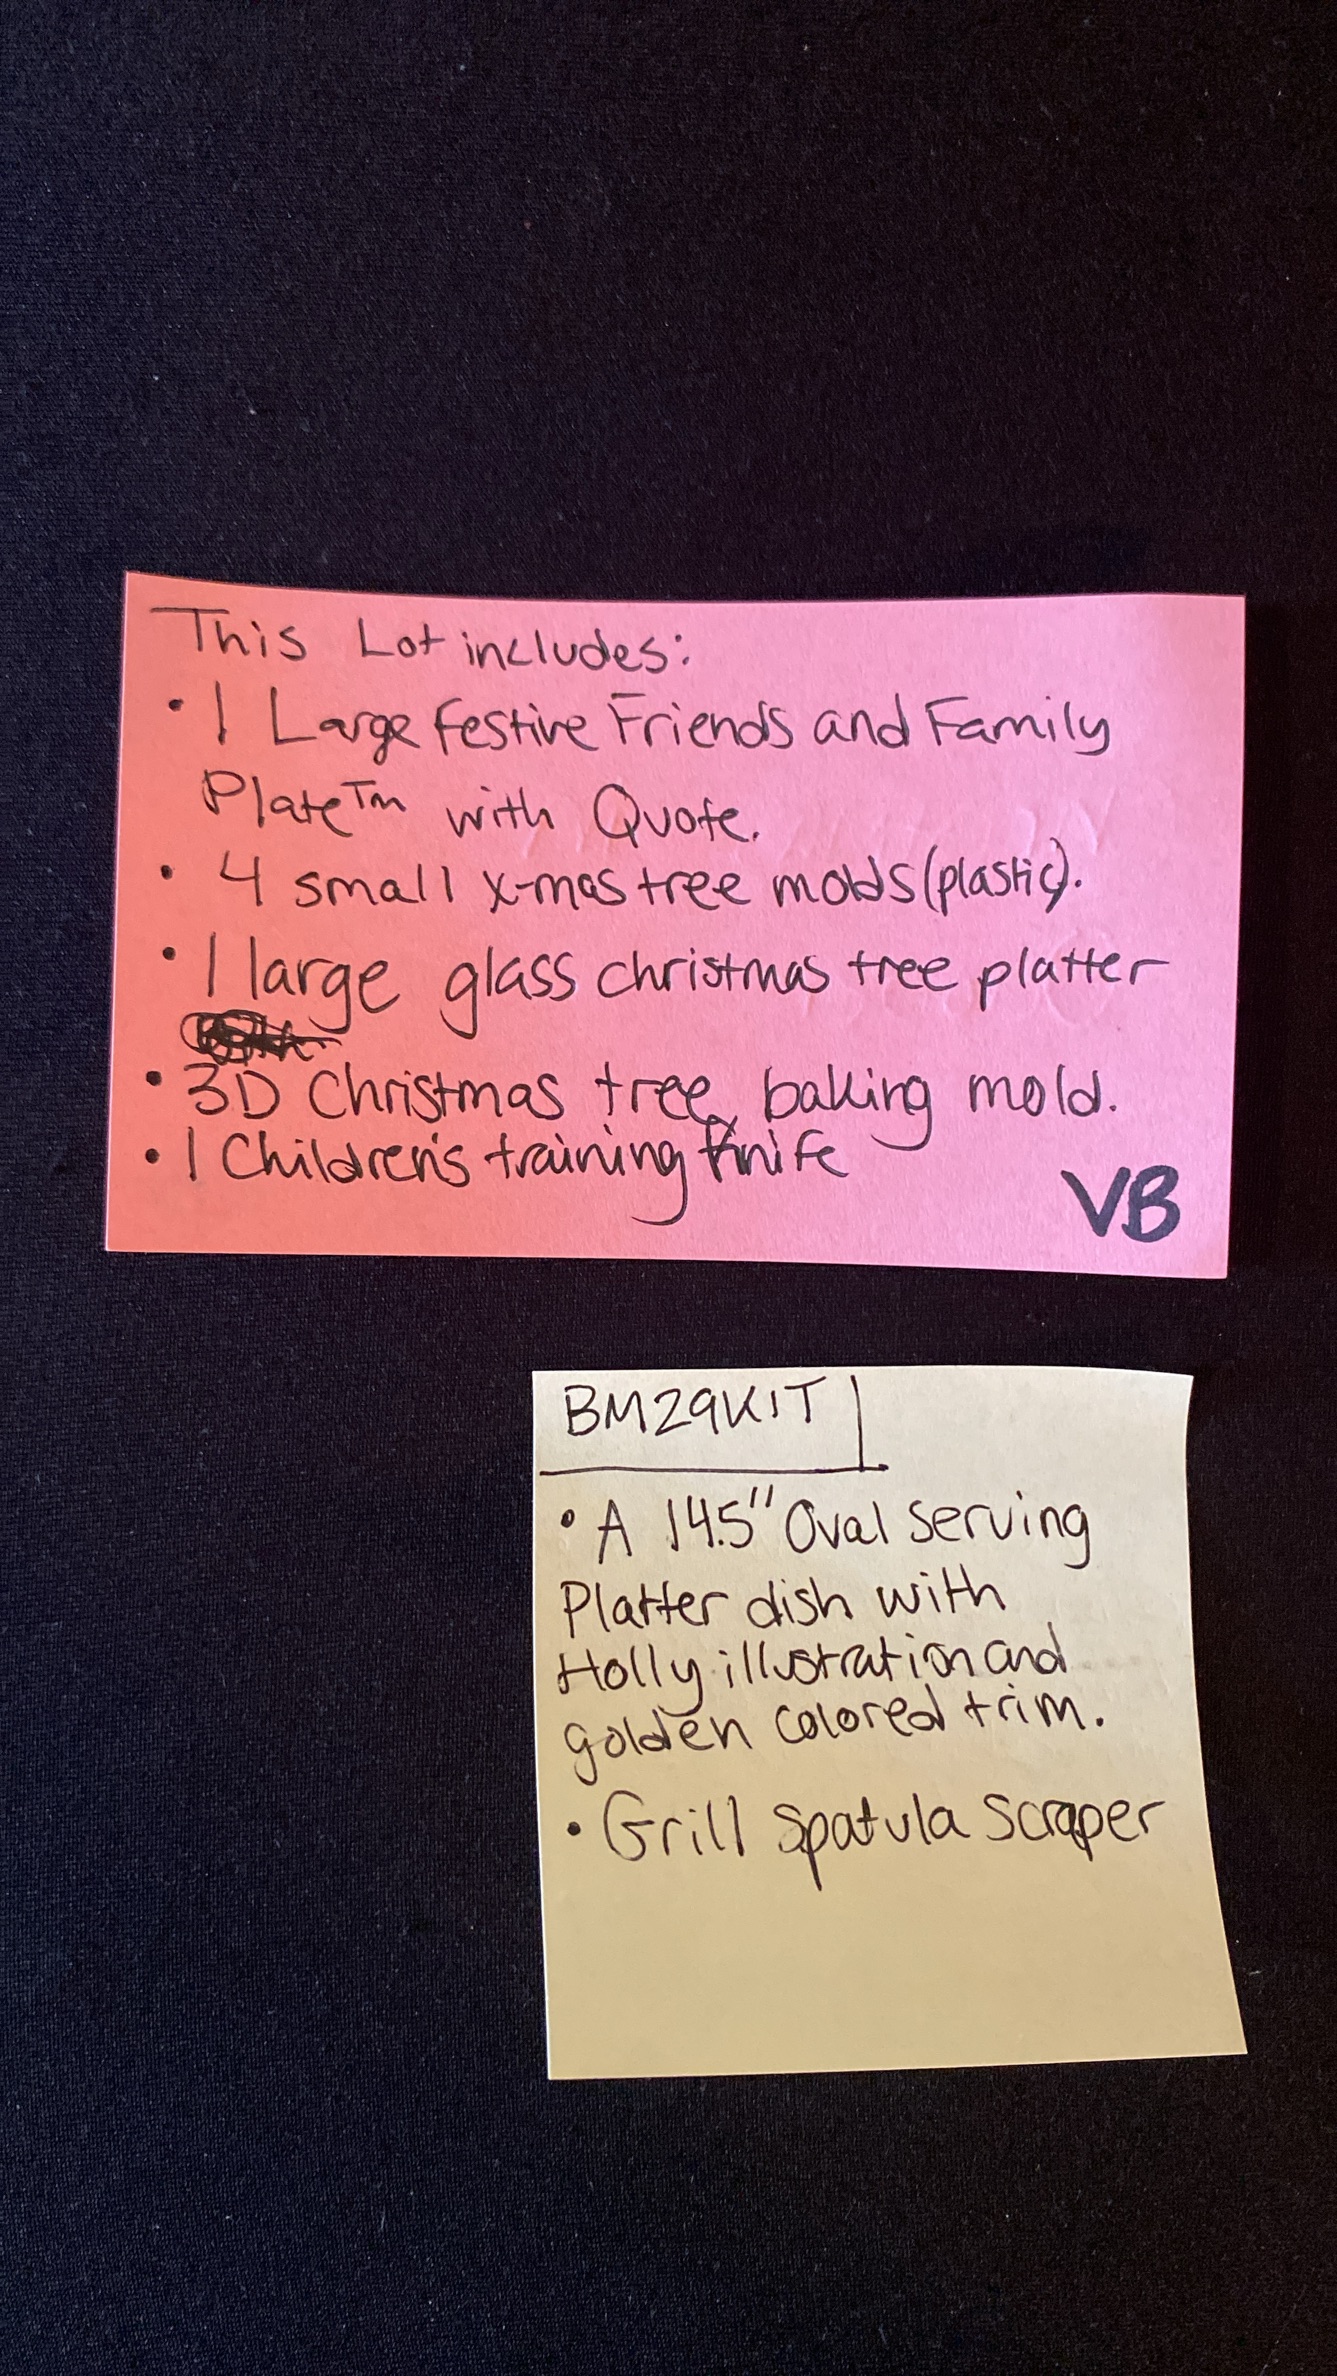 This Lot includes:
• 1 Large Festive Friends and Family
Plate™ with Quote.
• 4 small x-mas tree molds (plastic).
• 1 large glass christmas tree platter
• 3D Christmas tree baking mold.
• 1 Children's training knife
VB
BM29KIT
• A 14.5" Oval serving
Platter dish with
Holly illustration and
golden colored trim.
• Grill Spatula Scraper